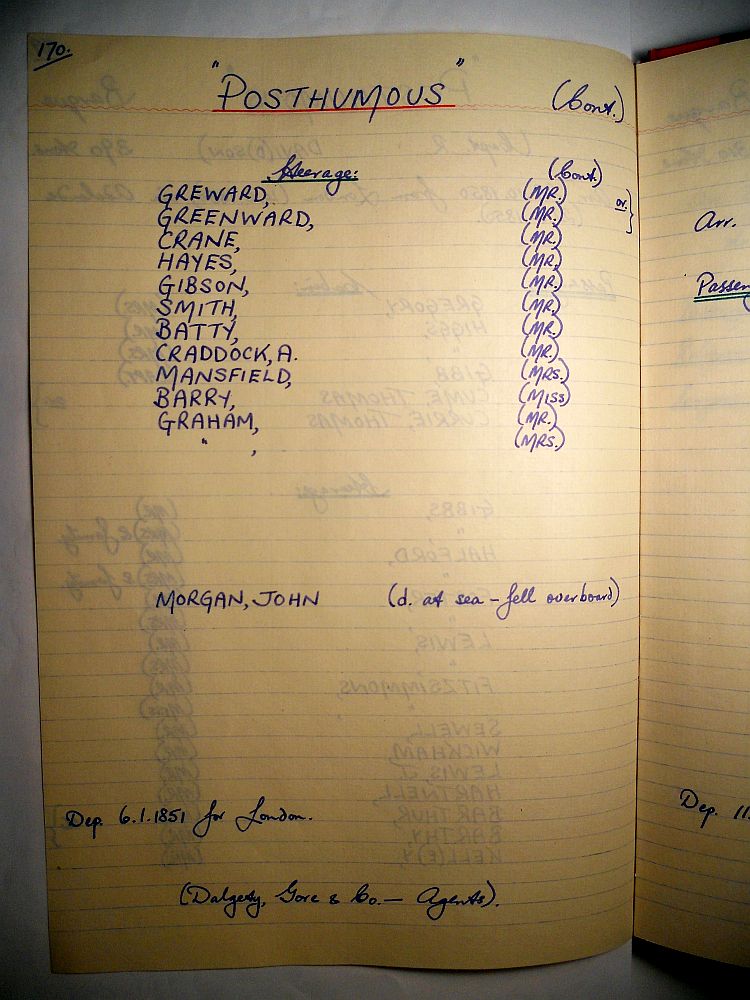 170.
"POSTHUMOUS" (Cont.)
Steerage: (Cont)
GREWARD, (MR.) or.
GREENWARD, (MR.)
CRANE, (MR.)
HAYES, (MR.)
GIBSON, (MR.)
SMITH, (MR.)
BATTY, (MR.)
CRADDOCK, A. (MR)
MANSFIELD, (MRS.)
BARRY, (MISS)
GRAHAM, (MR.)
" , (MRS.)
MORGAN, JOHN (d. at sea – fell overboard)
Dep. 6.1.1851 for London.
(Dalgety, Gore & Co. — Agents).
Arr.
Passen
Dep. 11.